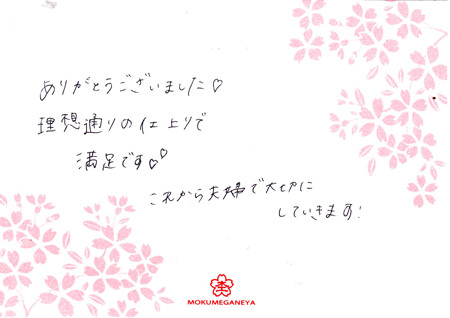 ありがとうございました♡
理想通りの仕上りで
満足です♡♡
これから夫婦で大切に
していきます!
杢
MOKUMEGANEYA